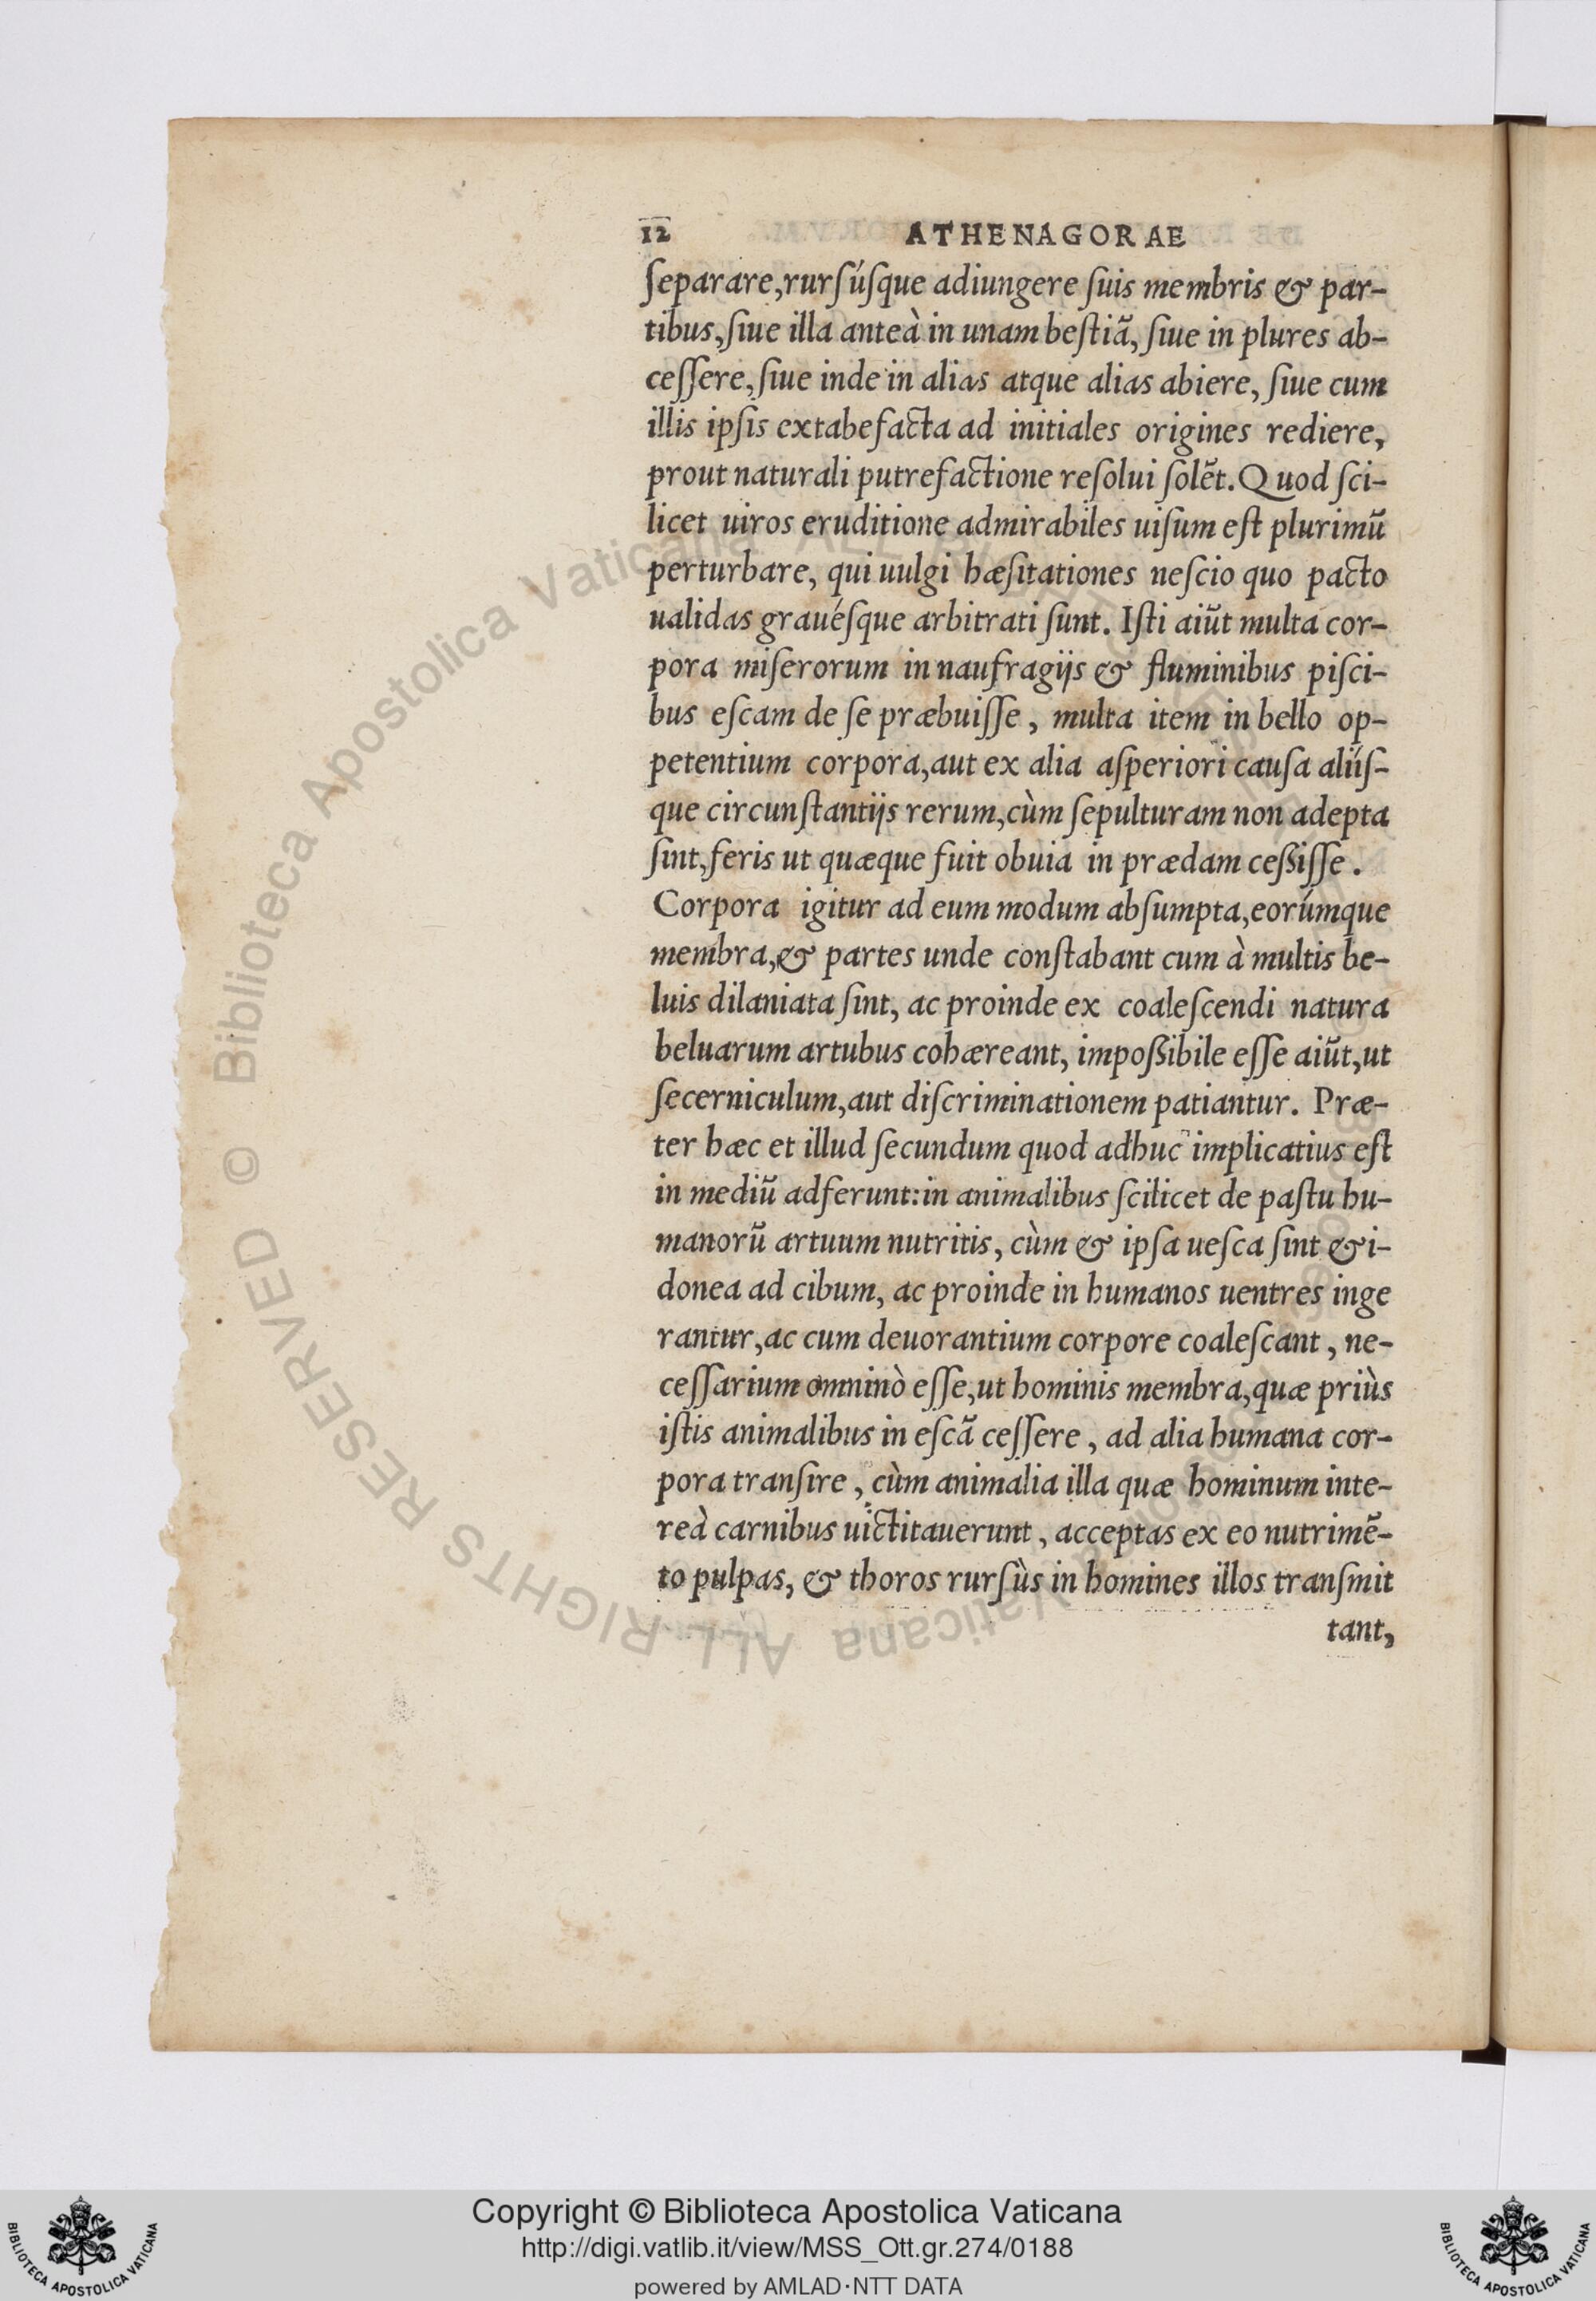 12 ATHENAGORAE
ſeparare,rurſúſque adiungere ſuis membris & par-
tibus,ſiue illa anteà in unam beſtiã, ſiue in plures ab-
ceſſere,ſiue inde in alias atque alias abiere, ſiue cum
illis ipſis extabefacta ad initiales origines rediere,
prout naturali putrefactione reſolui ſolẽt. Quod ſci-
licet uiros eruditione admirabiles uiſum eſt plurimũ
perturbare, qui uulgi hæſitationes neſcio quo pacto
ualidas grauéſque arbitrati ſunt. Iſti aiũt multa cor-
pora miſerorum in naufragijs & fluminibus piſci-
bus eſcam de ſe præbuiſſe, multa item in bello op-
petentium corpora,aut ex alia aſperiori cauſa alijſ-
que circunſtantijs rerum,cùm ſepulturam non adepta
ſint,feris ut quæque fuit obuia in prædam ceßiſſe.
Corpora igitur ad eum modum abſumpta,eorúmque
membra,& partes unde conſtabant cum à multis be-
luis dilaniata ſint, ac proinde ex coaleſcendi natura
beluarum artubus cohæreant, impoßibile eſſe aiũt,ut
ſecerniculum,aut diſcriminationem patiantur. Præ-
ter hæc et illud ſecundum quod adhuc implicatius eſt
in mediũ adferunt:in animalibus ſcilicet de paſtu hu-
manorũ artuum nutritis, cùm & ipſa ueſca ſint & i-
donea ad cibum, ac proinde in humanos uentres inge
rantur,ac cum deuorantium corpore coaleſcant, ne-
ceſſarium omninò eſſe,ut hominis membra,quæ priùs
iſtis animalibus in eſcã ceſſere, ad alia humana cor-
pora tranſire, cùm animalia illa quæ hominum inte-
reà carnibus uictitauerunt, acceptas ex eo nutrimẽ-
to pulpas, & thoros rurſùs in homines illos tranſmit
tant,
© Biblioteca Apostolica Vaticana ALL RIGHTS RESERVED
Copyright © Biblioteca Apostolica Vaticana
http://digi.vatlib.it/view/MSS_Ott.gr.274/0188
powered by AMLAD·NTT DATA
BIBLIOTECA APOSTOLICA VATICANA
BIBLIOTECA APOSTOLICA VATICANA